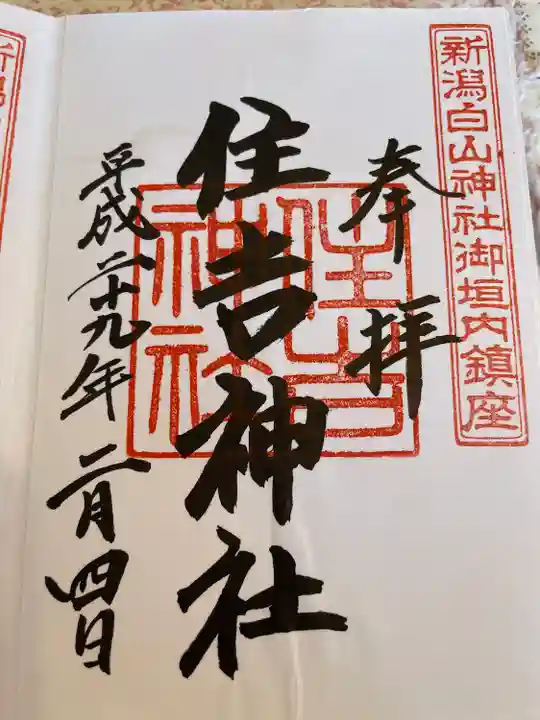 新潟白山神社御垣内鎮座
奉拝
住吉神社
住吉神社
平成二十九年二月四日
新潟